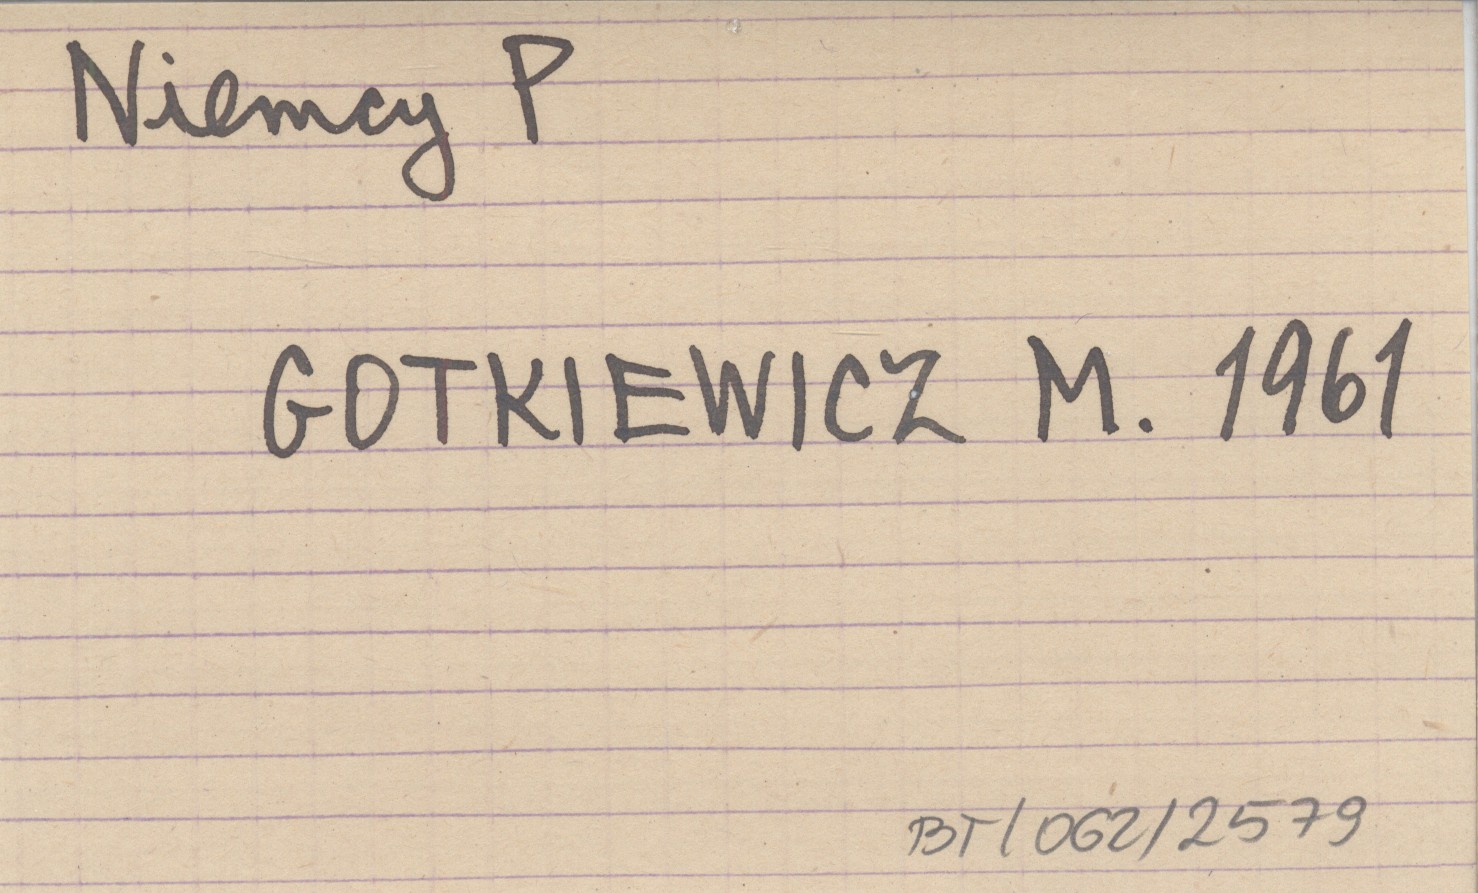 Niemcy P
GOTKIEWICZ M. 1961
BT/062/2579